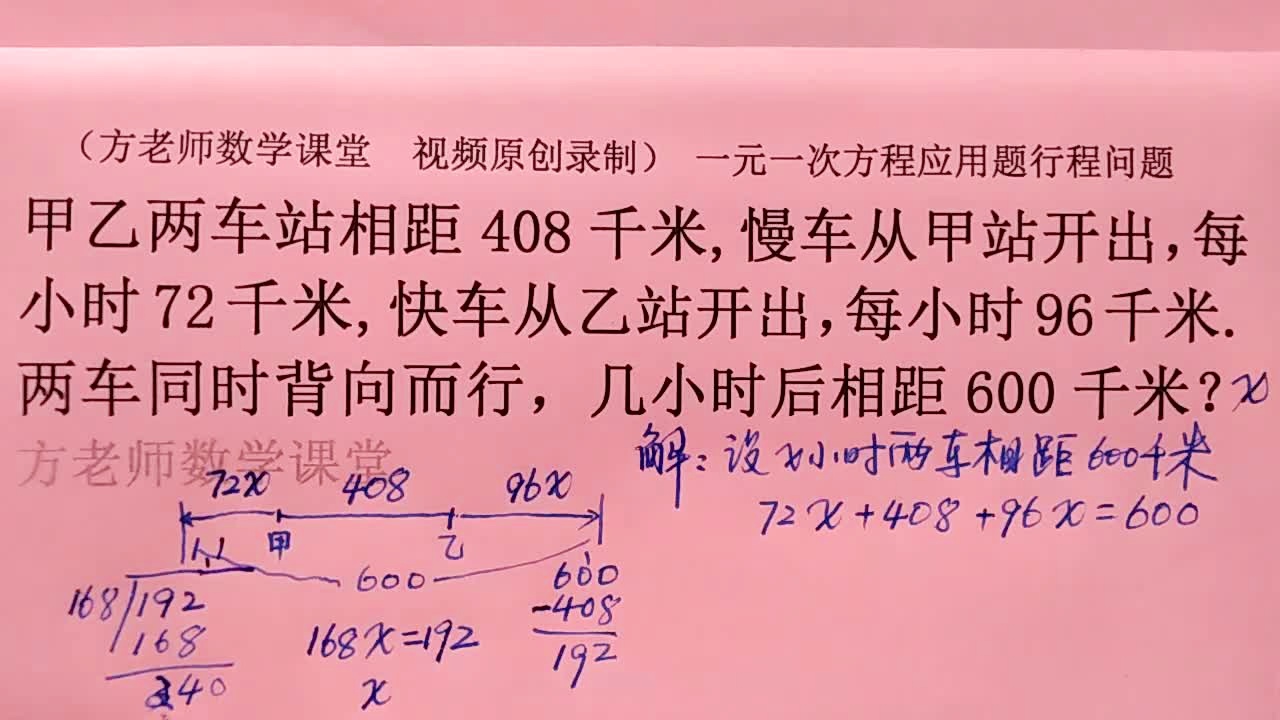 （方老师数学课堂　视频原创录制）　一元一次方程应用题行程问题
甲乙两车站相距 408 千米, 慢车从甲站开出，每
小时 72 千米, 快车从乙站开出，每小时 96 千米.
两车同时背向而行，几小时后相距 600 千米? x
方老师数学课堂
解：设 x 小时两车相距 600千米
72x 408 96x
72x+408+96x=600
甲 乙
600
600
-408
192
168 192
168
40
168x=192
x